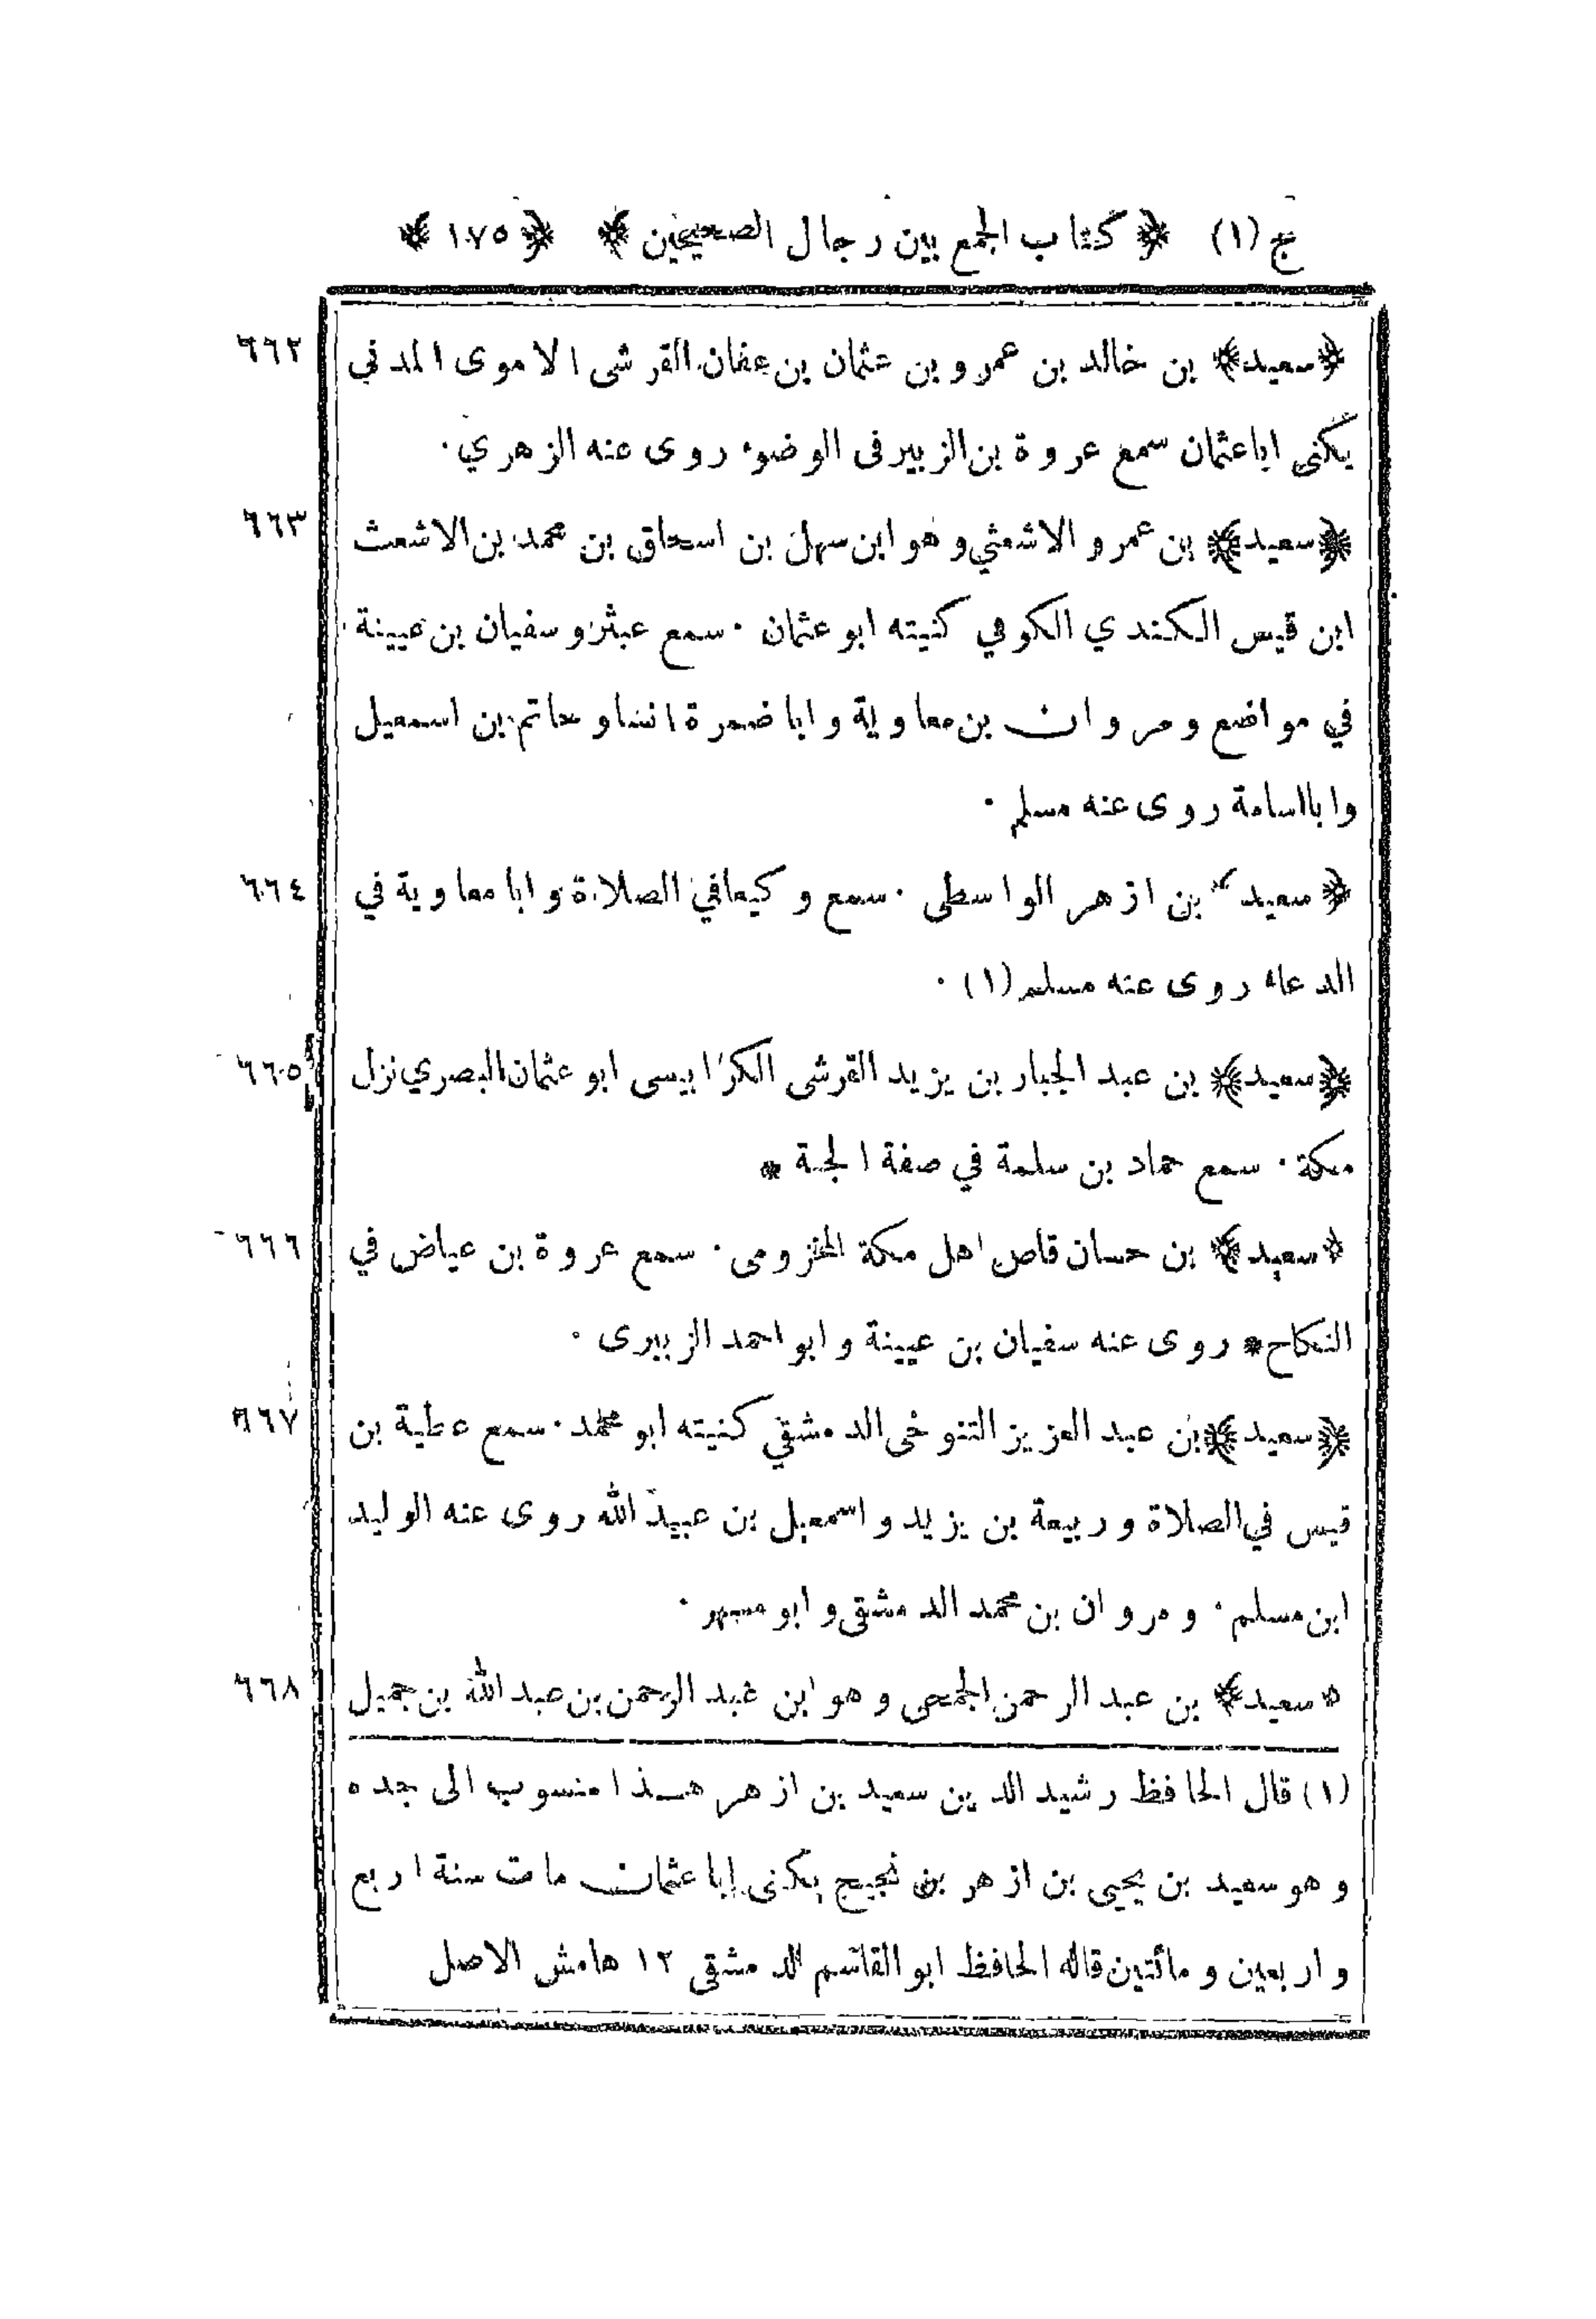 ج (١) ﴿ كتاب الجمع بين رجال الصحيحين ﴾ ﴿ ١٧٥ ﴾
﴿سعيد﴾ بن خالد بن عمرو بن عثمان بن عفان القرشى الاموى المدني ٦٦٢
يكنى اباعثمان سمع عروة بن الزبير فى الوضوء روى عنه الزهري ٠
﴿سعيد﴾ بن عمرو الاشعثي وهو ابن سهل بن اسحاق بن محمد بن الاشعث ٦٦٣
ابن قيس الكندي الكوفي كنيته ابو عثمان ٠ سمع عبثر وسفيان بن عيينة
في مواضع ومروان بن معاوية وابا ضمرة انسا وحاتم بن اسمعيل
وابااسامة روى عنه مسلم ٠
﴿سعيد﴾ بن ازهر الواسطى ٠ سمع وكيعا في الصلاة وابا معاوية في ٦٦٤
الدعاء روى عنه مسلم (١) ٠
﴿سعيد﴾ بن عبد الجبار بن يزيد القرشى الكرابيسى ابو عثمان البصري نزل ٦٦٥
مكة ٠ سمع حماد بن سلمة في صفة الجنة *
﴿سعيد﴾ بن حسان قاص اهل مكة المخزومى ٠ سمع عروة بن عياض في ٦٦٦
النكاح * روى عنه سفيان بن عيينة وابو احمد الزبيرى ٠
﴿سعيد﴾ بن عبد العزيز التنوخى الدمشقي كنيته ابو محمد ٠ سمع عطية بن ٦٦٧
قيس في الصلاة وربيعة بن يزيد واسمعيل بن عبيد الله روى عنه الوليد
ابن مسلم ٠ ومروان بن محمد الدمشقى وابو مسهر ٠
﴿سعيد﴾ بن عبد الرحمن الجمحى وهو ابن عبد الرحمن بن عبد الله بن جميل ٦٦٨
(١) قال الحافظ رشيد الدين سعيد بن ازهر هذا منسوب الى جده
وهو سعيد بن يحيى بن ازهر بن نجيح يكنى ابا عثمان مات سنة اربع
واربعين ومائتين قاله الحافظ ابو القاسم الدمشقى ١٢ هامش الاصل